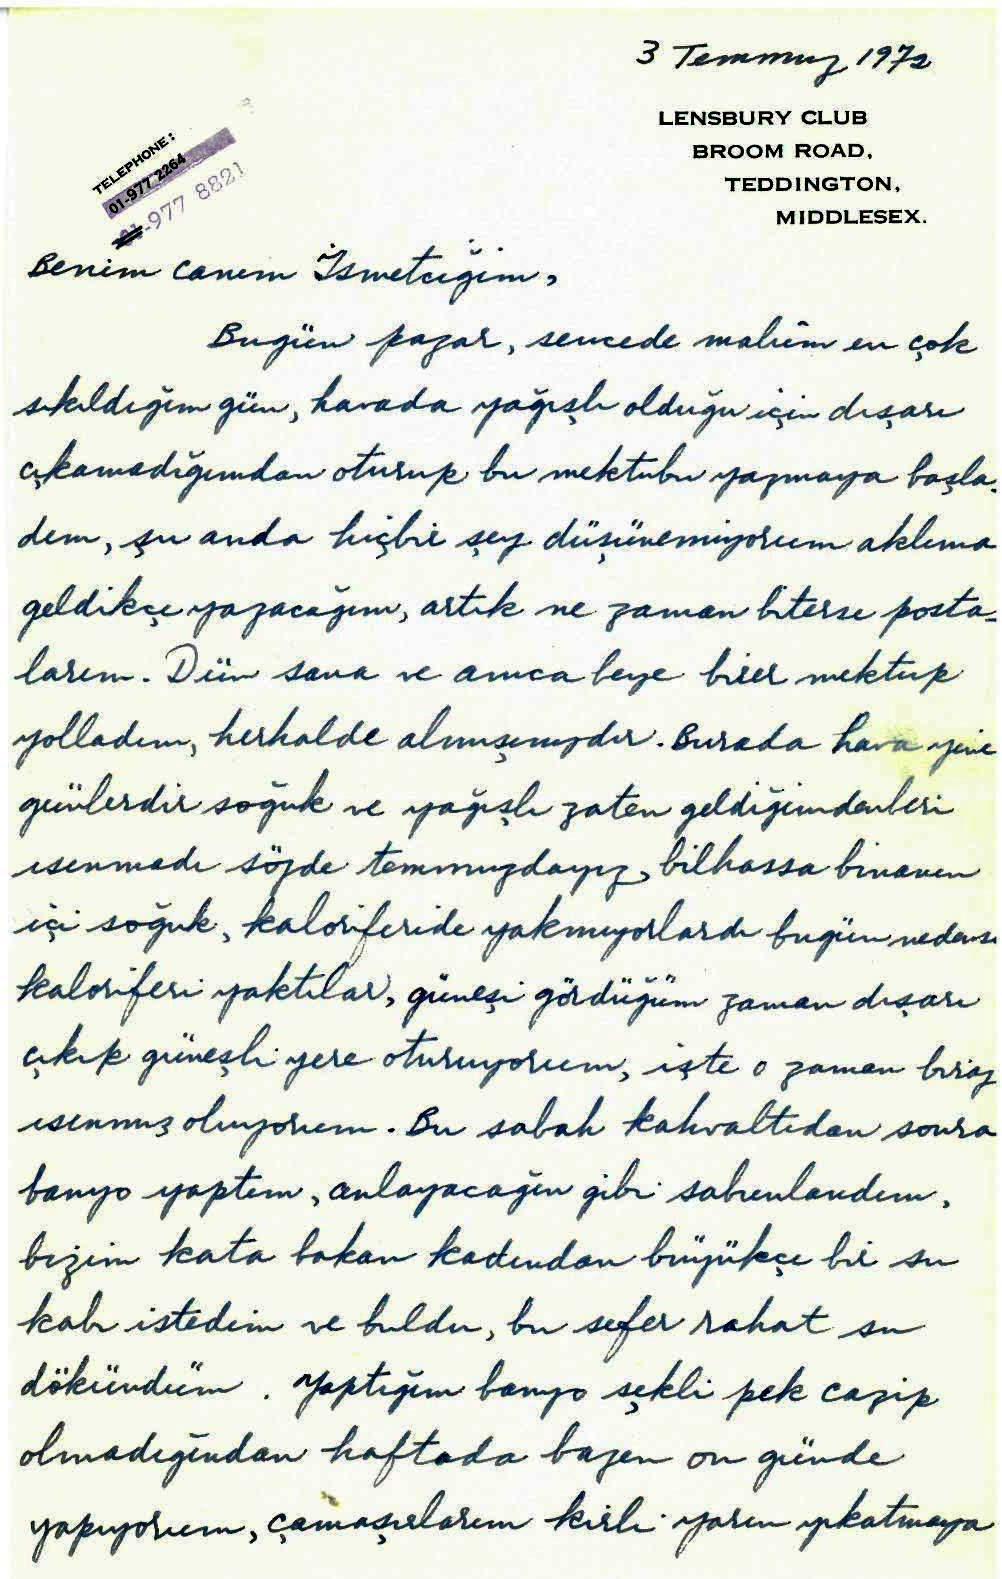 3 Temmuz 1972
LENSBURY CLUB
BROOM ROAD,
TEDDINGTON,
MIDDLESEX.
TELEPHONE:
01-977 2264
01-977 8821
Benim canım İsmetciğim,
Bugün pazar, sencede malûm en çok
sıkıldığım gün, havada yağışlı olduğu için dışarı
çıkamadığımdan oturup bu mektubu yazmaya başla-
dım, şu anda hiçbir şey düşünemiyorum aklıma
geldikçe yazacağım, artık ne zaman biterse posta-
larım. Dün sana ve amca beye birer mektup
yolladım, herhalde almışsınızdır. Burada hava yine
günlerdir soğuk ve yağışlı zaten geldiğimdenberi
ısınmadı sözde temmuzdayız, bilhassa binanın
içi soğuk, kaloriferide yakmıyorlardı bugün nedense
kaloriferi yaktılar, güneşi gördüğüm zaman dışarı
çıkıp güneşli yere oturuyorum, işte o zaman biraz
ısınmış oluyorum. Bu sabah kahvaltıdan sonra
banyo yaptım, anlayacağın gibi sabunlandım,
bizim kata bakan kadından büyükçe bir su
kabı istedim ve buldu, bu sefer rahat su
döküндüm. Yaptığım banyo şekli pek cazip
olmadığından haftada bazen on günde
yapıyorum, çamaşırlarım kirli yarın yıkatmaya